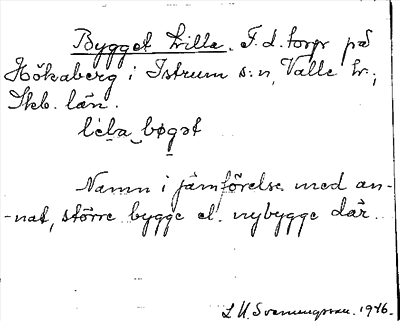 Bygget Lilla. F. d. torp på
Hökaberg i Istrum s:n, Valle hr.;
Skb. län.
lela bøgət
Namn i jämförelse med an-
-nat, större bygge el. nybygge där.
1946.